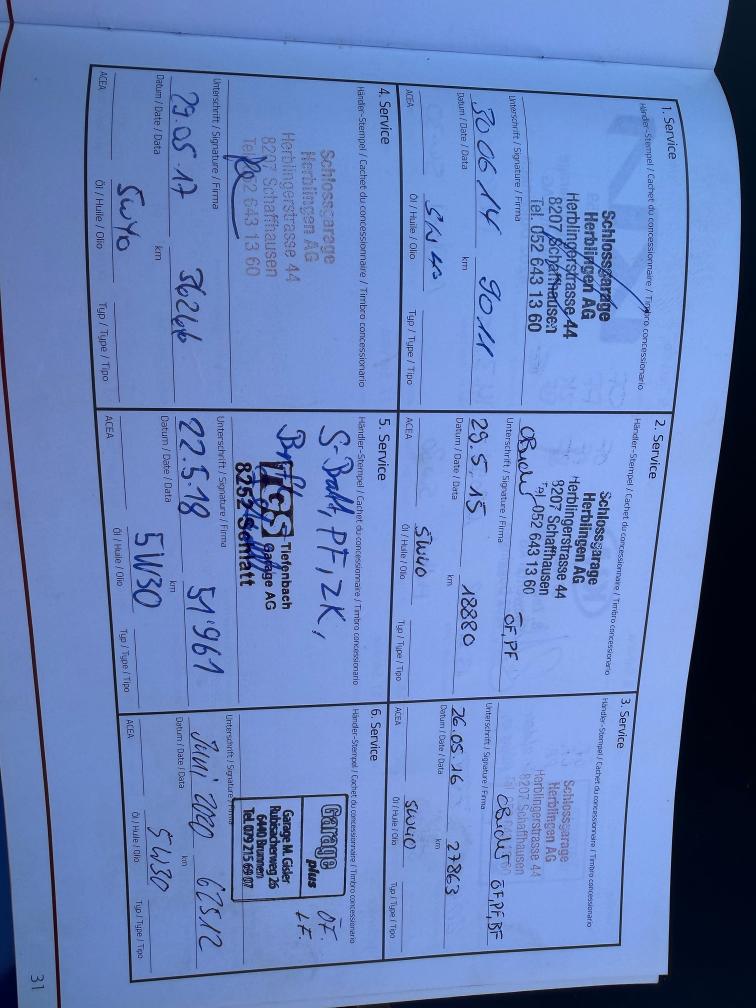 1. Service
Händler-Stempel / Cachet du concessionnaire / Timbro concessionario
Schlossgarage
Herblingen AG
Herblingerstrasse 44
8207 Schaffhausen
Tel. 052 643 13 60
Unterschrift / Signature / Firma
30 06 14 9011
Datum / Date / Data km
5W40
ACEA Öl / Huile / Olio Typ / Type / Tipo
2. Service
Händler-Stempel / Cachet du concessionnaire / Timbro concessionario
Schlossgarage
Herblingen AG
Herblingerstrasse 44
8207 Schaffhausen
Tel. 052 643 13 60
ÖF, PF
Unterschrift / Signature / Firma
29.5.15 18880
Datum / Date / Data km
5W40
ACEA Öl / Huile / Olio Typ / Type / Tipo
3. Service
Händler-Stempel / Cachet du concessionnaire / Timbro concessionario
Schlossgarage
Herblingen AG
Herblingerstrasse 44
8207 Schaffhausen
Tel. 052 643 13 60
ÖF, PF, BF
Unterschrift / Signature / Firma
26.05.16 27863
Datum / Date / Data km
5W40
ACEA Öl / Huile / Olio Typ / Type / Tipo
4. Service
Händler-Stempel / Cachet du concessionnaire / Timbro concessionario
Schlossgarage
Herblingen AG
Herblingerstrasse 44
8207 Schaffhausen
Tel. 052 643 13 60
Unterschrift / Signature / Firma
29.05.17
Datum / Date / Data km
5W40
ACEA Öl / Huile / Olio Typ / Type / Tipo
5. Service
Händler-Stempel / Cachet du concessionnaire / Timbro concessionario
S-Batt, PF, ZK,
Tiefenbach
Garage AG
8252 Schlatt
Unterschrift / Signature / Firma
22.5.18 51'961
Datum / Date / Data km
5W30
ACEA Öl / Huile / Olio Typ / Type / Tipo
6. Service
Händler-Stempel / Cachet du concessionnaire / Timbro concessionario
Garage plus
ÖF.
LF.
Garage M. Gisler
Rubiacherweg 26
6440 Brunnen
Tel. 079 215 69 07
Unterschrift / Signature / Firma
Juni 2020 62512
Datum / Date / Data km
5W30
ACEA Öl / Huile / Olio Typ / Type / Tipo
31